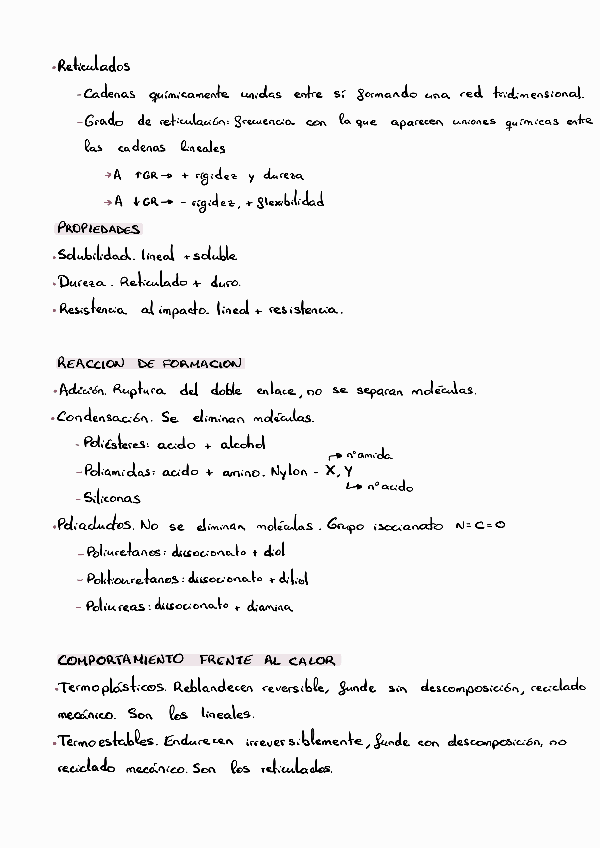 ·Reticulados
-Cadenas químicamente unidas entre sí formando una red tridimensional.
-Grado de reticulación: frecuencia con la que aparecen uniones químicas entre
las cadenas lineales
→A ↑GR→ + rigidez y dureza
→A ↓GR→ - rigidez, + flexibilidad
PROPIEDADES
·Solubilidad. lineal + soluble
·Dureza. Reticulado + duro.
·Resistencia al impacto. lineal + resistencia.
REACCION DE FORMACION
·Adición. Ruptura del doble enlace, no se separan moléculas.
·Condensación. Se eliminan moléculas.
-Poliésteres: acido + alcohol
↱ nº amida
-Poliamidas: acido + amino. Nylon - X, Y
↳ nº acido
-Siliconas
·Poliaductos. No se eliminan moléculas. Grupo isocianato N=C=O
-Poliuretanos: diisocionato + diol
-Politiouretanos: diisocionato + ditiol
-Poliureas: diisocionato + diamina
COMPORTAMIENTO FRENTE AL CALOR
·Termoplásticos. Reblandecen reversible, funde sin descomposición, reciclado
mecánico. Son los lineales.
·Termoestables. Endurecen irreversiblemente, funde con descomposición, no
reciclado mecánico. Son los reticulados.